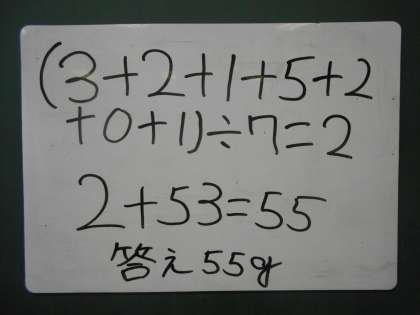 (3+2+1+5+2
+0+1)÷7=2
2+53=55
答え55g